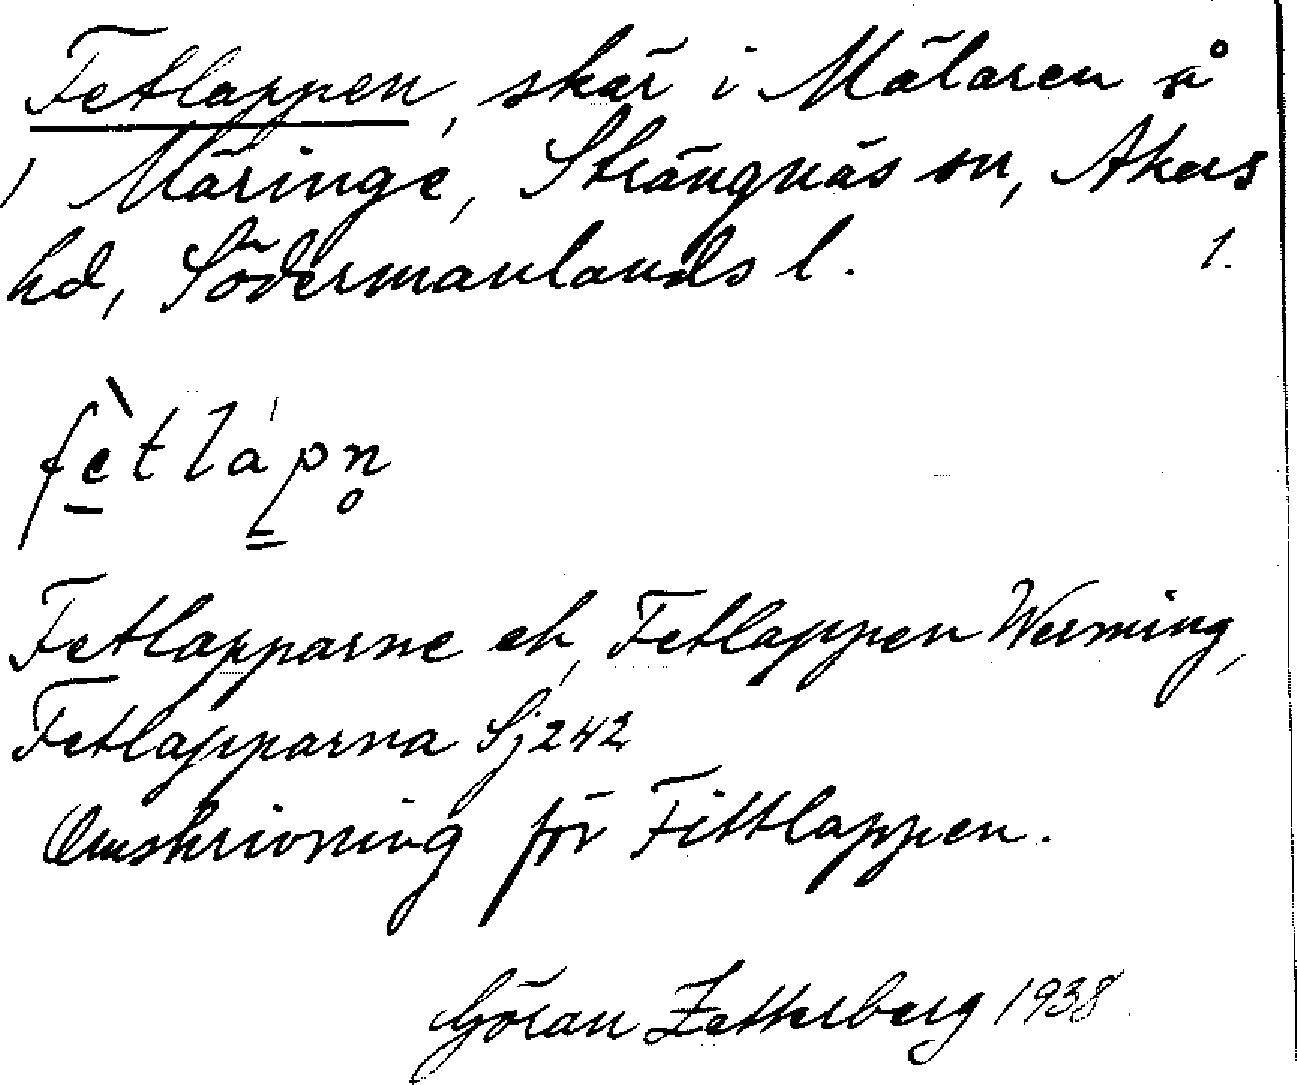 Fetlappen, skär i Mälaren å
Märinge, Strängnäs sn, Åkers
hd, Södermanlands l. 1.
fètlápn̥
Fetlapparne ek, Fetlappen Werming,
Fetlapparna Sj 242
Omskrivning för Fittlappen.
Göran Zetterberg 1938